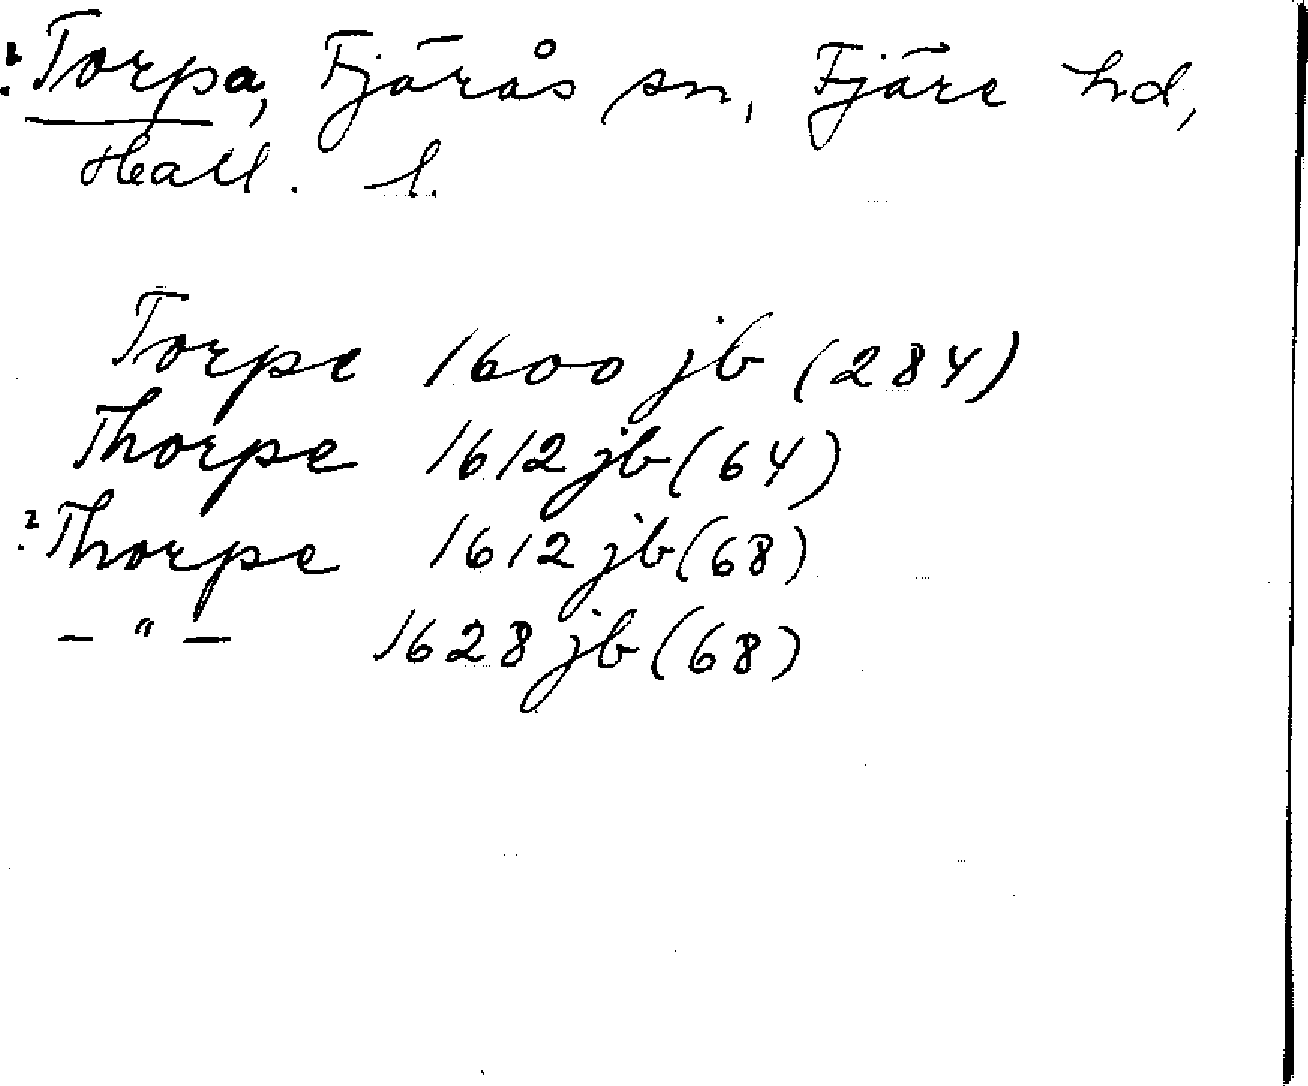 ?Torpa, Fjärås sn, Fjäre hd,
Hall. l.
Torpe 1600 jb (284)
Thorpe 1612 jb (64)
?Thorpe 1612 jb (68)
– " – 1628 jb (68)